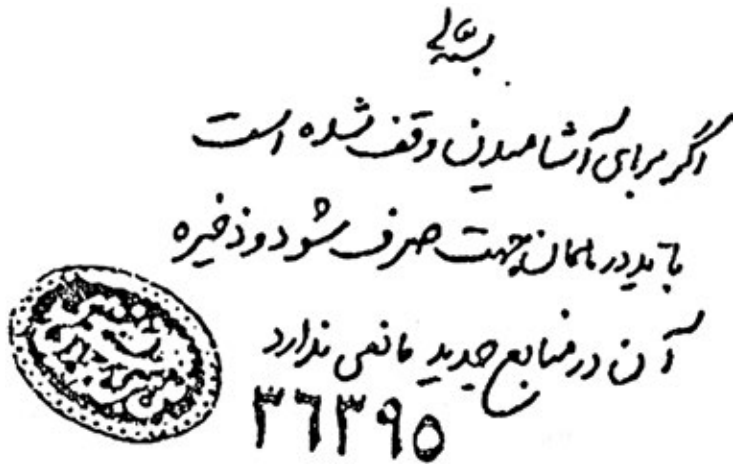 بسمه تعالی
اگر برای آشامیدن وقف شده است
باید در همان جهت صرف شود و ذخیره
آن در منابع جدید مانعی ندارد
۳۶۳۹۵